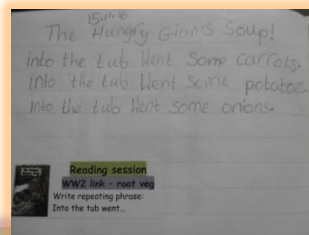 15.11.16
The Hungry Giants Soup!
into the tub Went Some carrots.
into the tub Went Some potatoes
Into the tub Went some onions.
Reading session
WW2 link – root veg
Write repeating phrase:
Into the tub went...